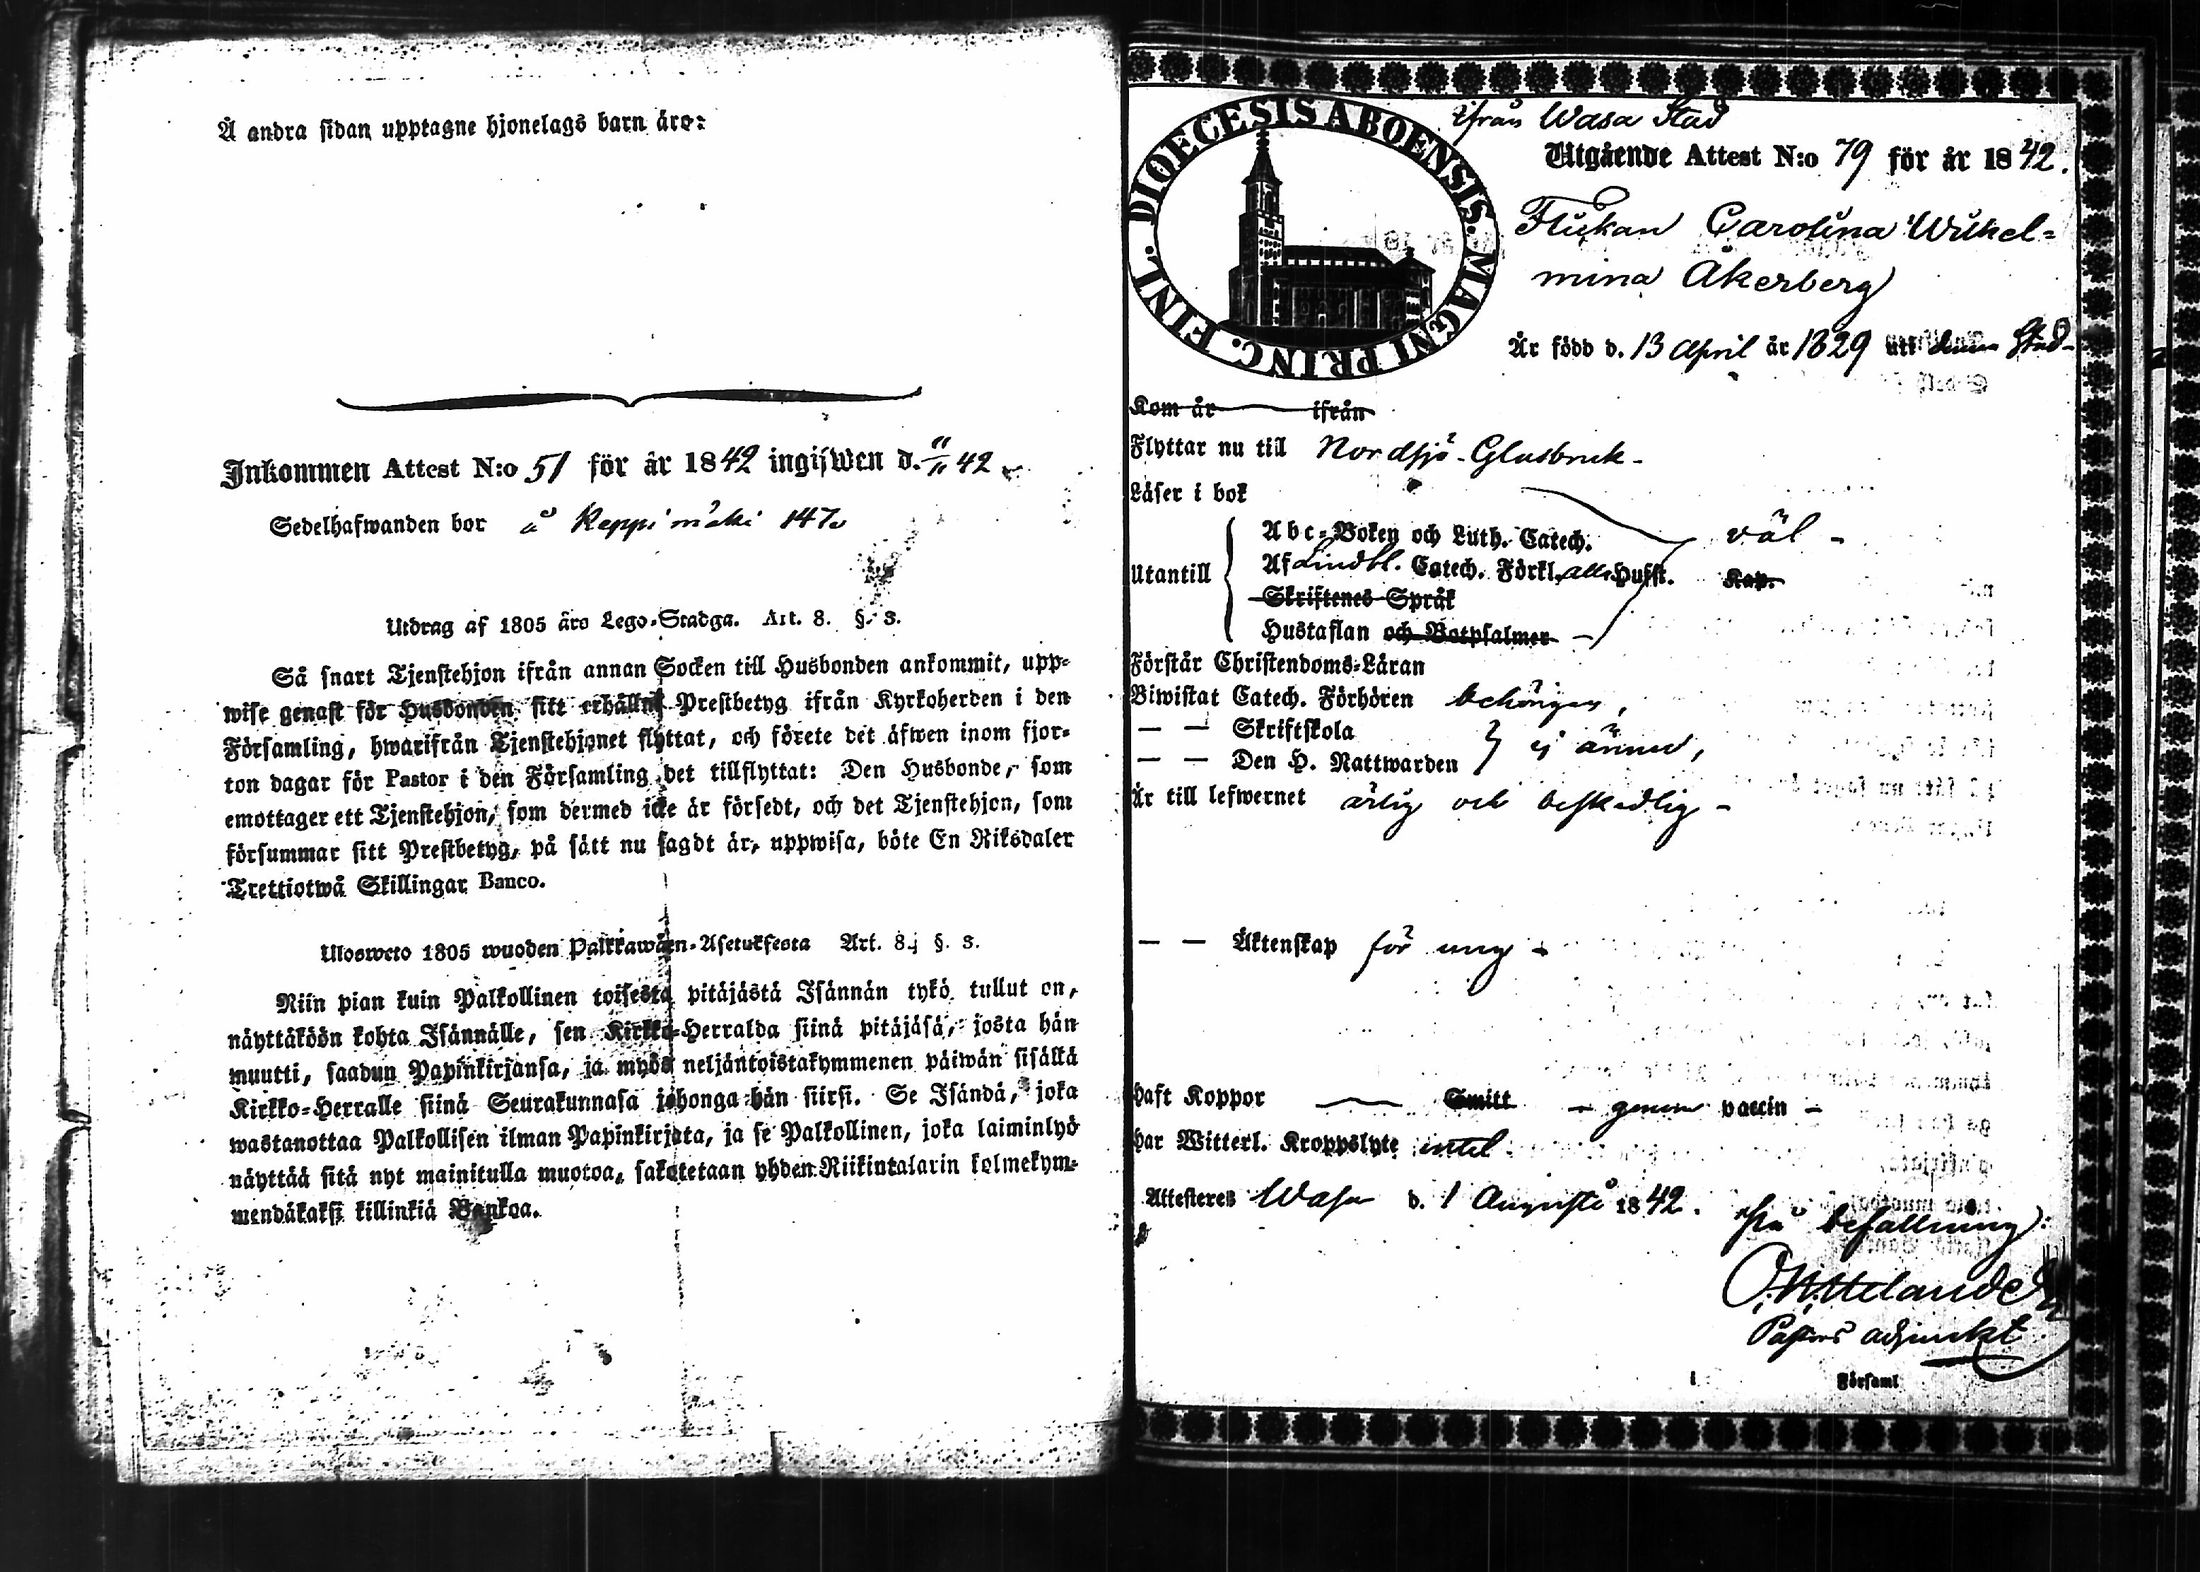 Å andra sidan upptagne hjonelags barn äro:
Inkommen Attest N:o 51 för år 1842 ingifwen d. 11/11 42
Sedelhafwanden bor å Reppimäki 147
Utdrag af 1805 års Lego-Stadga. Art. 8. §. 3.
Så snart Tjenstehjon ifrån annan Socken till Husbonden ankommit, upp-
wise genast för Husbonden sitt erhållne Prestbetyg ifrån Kyrkoherden i den
Församling, hwarifrån Tjenstehjonet flyttat, och förete det äfwen inom fjor-
ton dagar för Pastor i den Församling det tillflyttat: Den Husbonde, som
emottager ett Tjenstehjon, som dermed icke är försedt, och det Tjenstehjon, som
försummar sitt Prestbetyg, på sätt nu sagdt är, uppwisa, böte En Riksdaler
Trettiotwå Skillingar Banco.
Ulosweto 1805 wuoden Palkkawäen-Asetuksesta Art. 8. §. 3.
Niin pian kuin Palkollinen toisesta pitäjästä Isännän tykö tullut on,
näyttäköön kohta Isännälle, sen Kirkko-Herralda siinä pitäjäsä, josta hän
muutti, saadun Papinkirjansa, ja myös neljäntoistakymmenen päiwän sisällä
Kirkko-Herralle siinä Seurakunnasa johonga hän siirsi. Se Isändä, joka
wastanottaa Palkollisen ilman Papinkirjata, ja se Palkollinen, joka laiminlyö
näyttää sitä nyt mainitulla muotoa, sakotetaan yhden Riikintalarin kolmekym-
mendäkaksi killinkiä Bankoa.
DIOECESIS ABOENSIS. MAGNI PRINC. FINL.
ifrån Wasa Stad
Utgående Attest N:o 79 för år 1842.
Flickan Carolina Wilhel-
mina Åkerberg
Är född d. 13 April år 1829 uti denna Stad
Kom år ifrån
Flyttar nu till Nordsjö Glasbruk
Läser i bok
Utantill
Abc-Boken och Luth. Catech. väl
Af Lindbl. Catech. Förkl. alla Hufst. Kap.
Skriftenes Språk
Hustaflan och Botpsalmer
Förstår Christendoms-Läran
Biwistat Catech. Förhören behörigen,
— — Skriftskola
— — Den H. Nattwarden ej ännu,
Är till lefwernet ärlig och beskedlig
— — Äktenskap för ung
haft Koppor Smitt genom vaccin
har Witterl. Kroppslyte intet
Attesteres Wasa d. 1 Augusti 1842.
På befallning:
Pastors adjunkt
i Församl